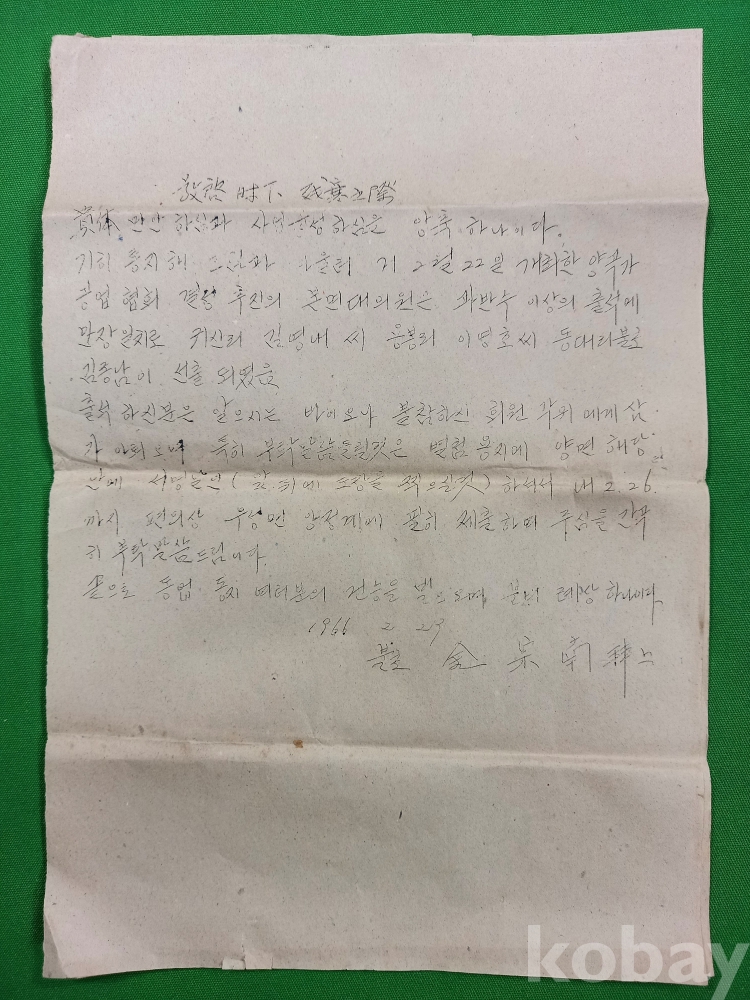 敬啓 时下 残寒之際
貴体 만안 하심과 사업 하심은 앙축 하나이다.
기히 통지해 드림과 2월 22일 개최한 양축가
협회 결성 추진의 면대의원은 과반수 이상의 출석에
만장일치로 김영내 씨 응봉리 이영호씨 동대리분로
김종남이 선출 되였음
출석 하신분은 알으시는 바이오나 불참하신 회원 각위 에게 삼
가 아뢰오며 특히 부탁말씀들릴것은 별첨 용지에 양면 해당
란에 서명날인 (앞.뒤에 도장을 찍으실것) 하셔서 내 2.26.
까지 편의상 면 에 필히 제출하며 주심을 간곡
히 부탁말씀드립니다.
끝으로 동업 동지 여러분의 건승을 빌으오며, 분망 례장 하나이다
1966 2 23
金 宗 南 拜上
kobay